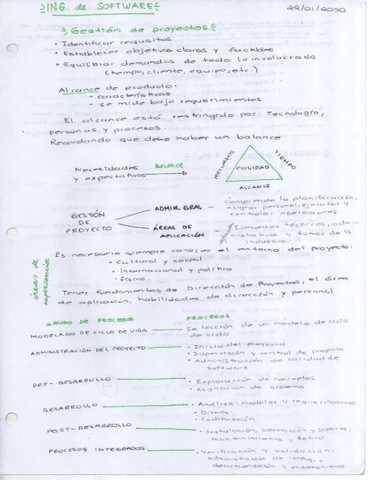 ING. de SOFTWARE 22/01/2030
Gestión de proyectos
• Identificar requisitos
• Establecer objetivos claros y factibles
• Equilibrar demandas de todo lo involucrado
(tiempo, cliente, equipo, etc.)
Alcance de producto:
- características
- se mide bajo requerimientos
El alcance está restringido por: Tecnología,
personas y procesos.
Recordando que debe haber un balance
Necesidades BALANCE
y expectativas
RECURSOS TIEMPO
CALIDAD
ALCANCE
GESTIÓN DE PROYECTO
ADMIN. GRAL → Comprende la planificación,
asignar personal, ejecutar y
controlar operaciones
ÁREAS DE APLICACIÓN → Elementos técnicos, administrativos y
industria
Es necesario siempre conocer el entorno del proyecto:
• Cultural y social
• Internacional y político
• Físico.
áreas de experiencia
Tener fundamentos de Dirección de Proyectos, el área
de aplicación, habilidades de dirección y personal
GRUPO DE PROCESOS PROCESOS
MODELADO DE CICLO DE VIDA Selección de un modelo de ciclo
de vida
ADMINISTRACIÓN DEL PROYECTO • Inicio del proyecto
• Supervisión y control de proyecto
• Administración de calidad de
software
PRE-DESARROLLO • Exploración de conceptos
• Asignación de sistema
DESARROLLO • Análisis, modelos y requerimientos
• Diseño
• Codificación
POST-DESARROLLO • Instalación, operación y soporte,
mantenimiento y Retiro
PROCESOS INTEGRADOS • Verificación y validación,
administración de config.,
documentación y entrenamiento